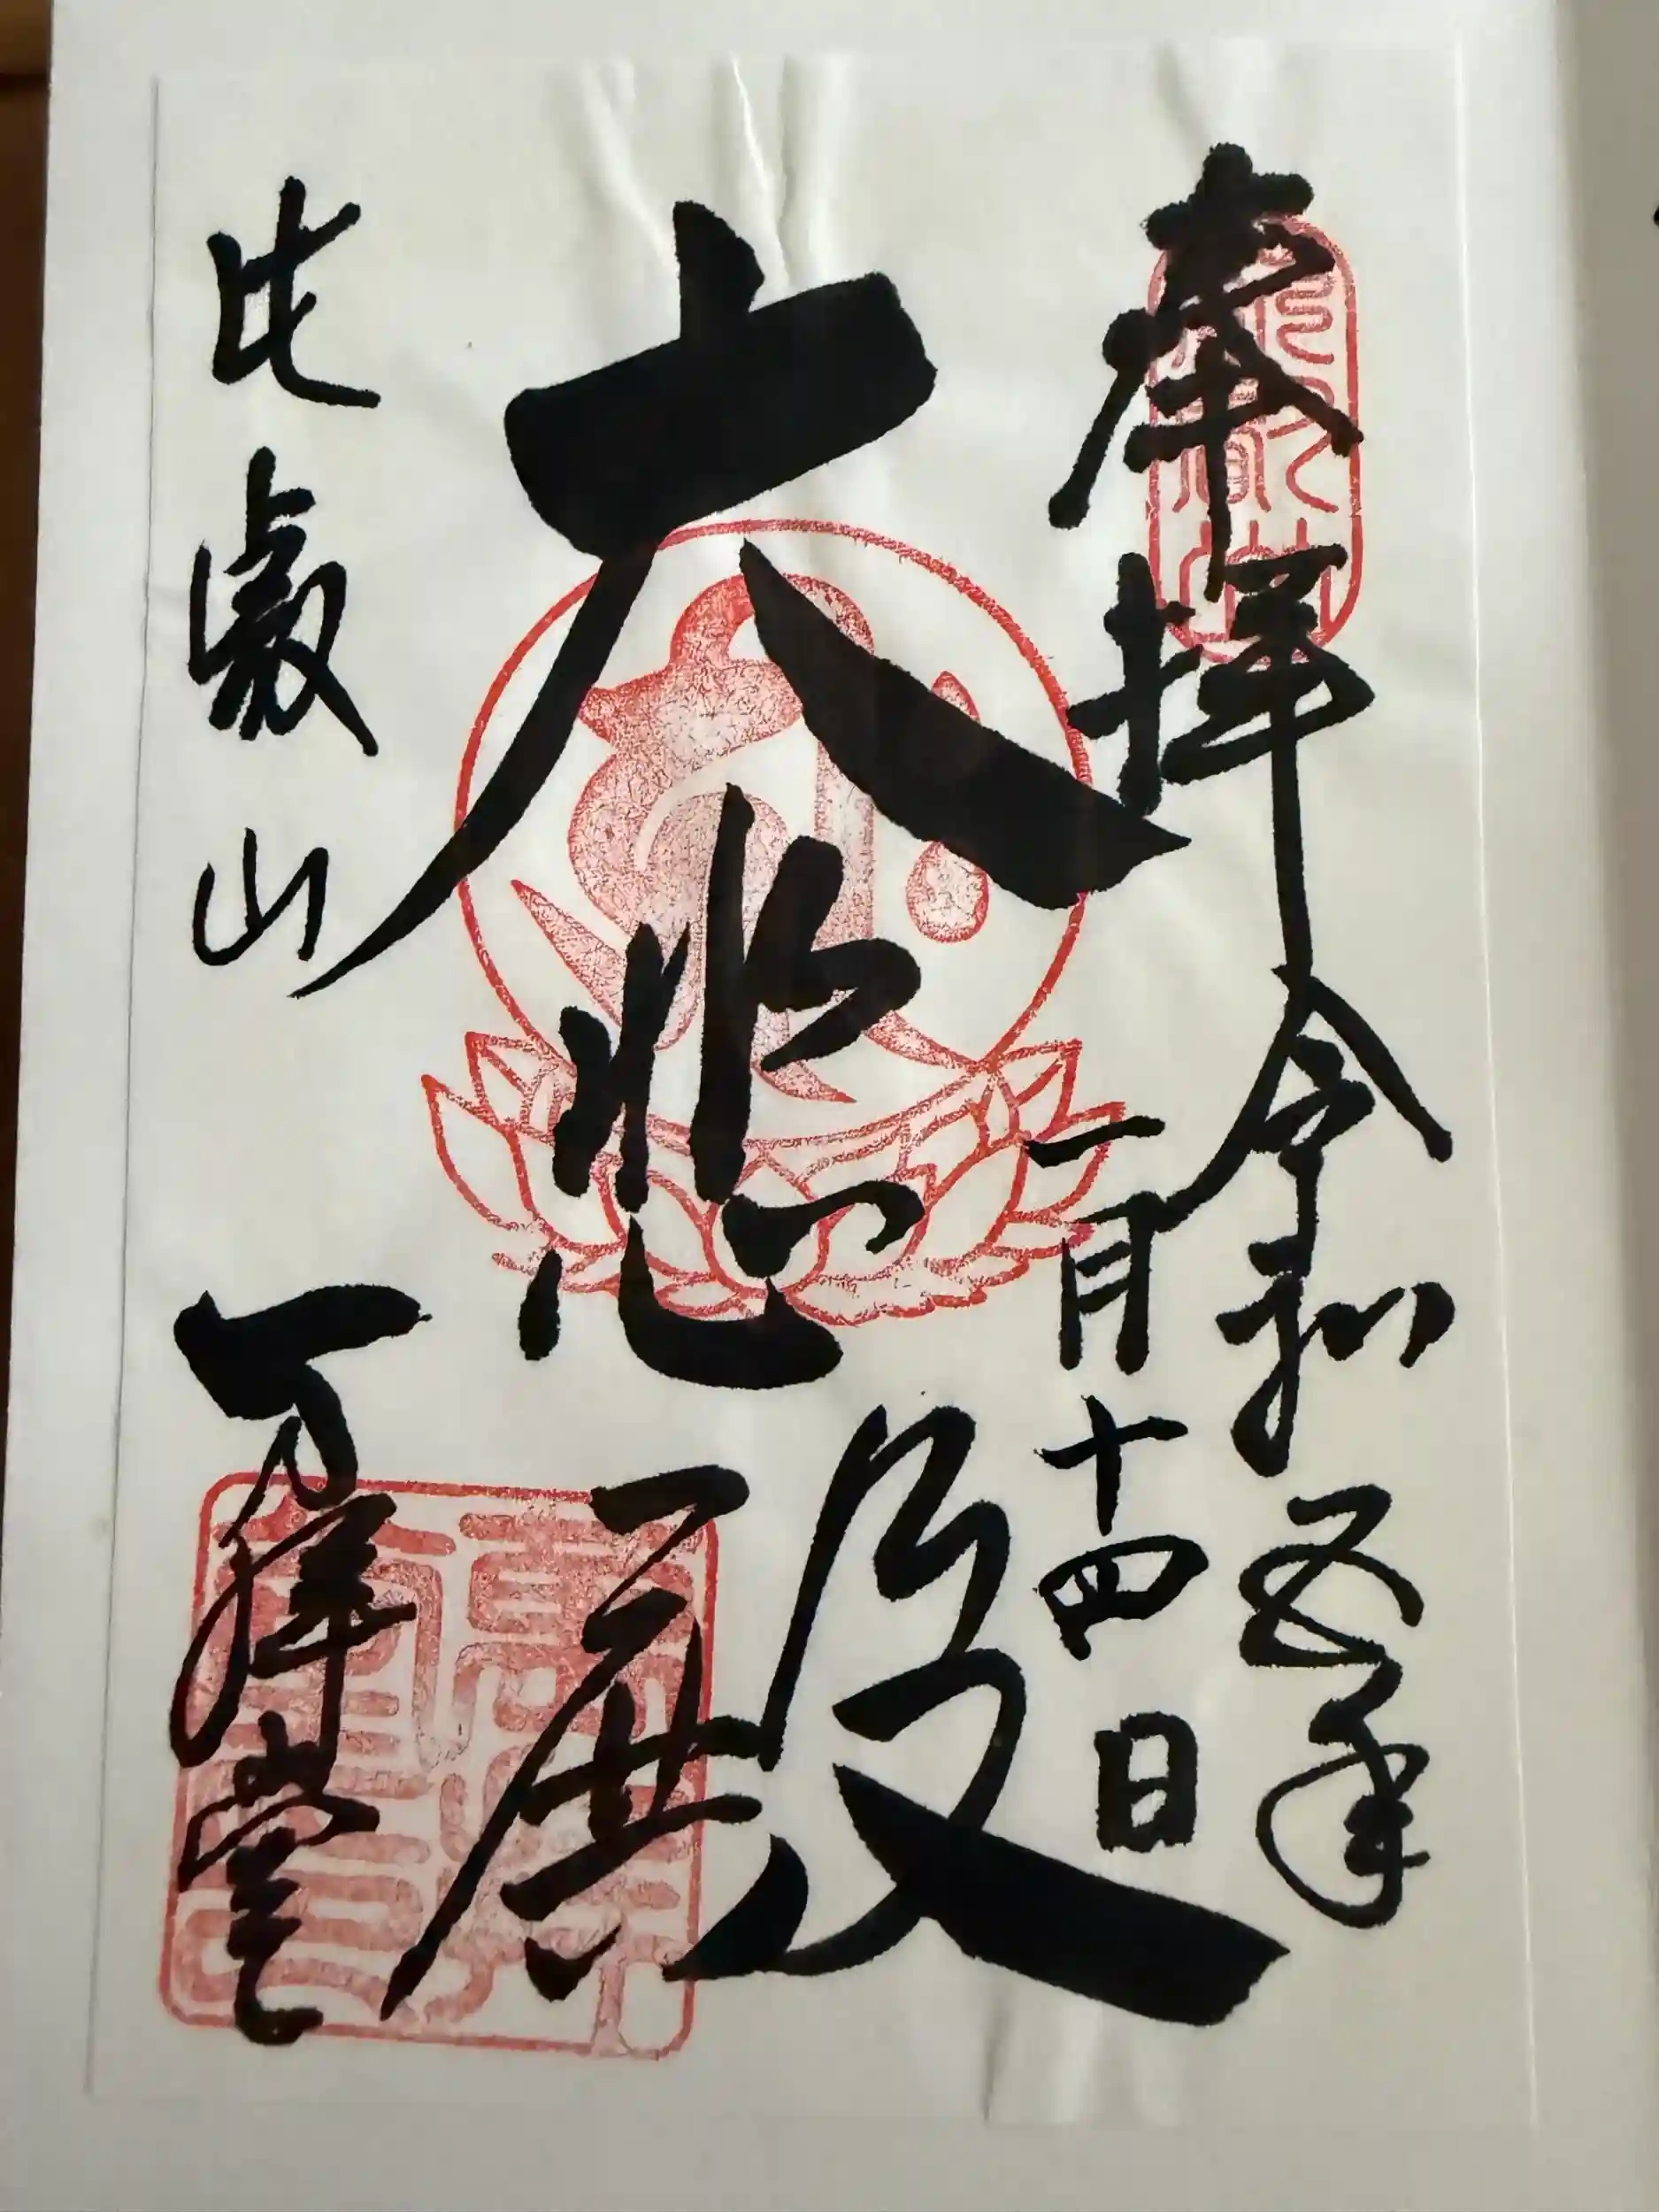 奉拝 令和五年
一月十四日
大悲殿
比叡山
万拝堂